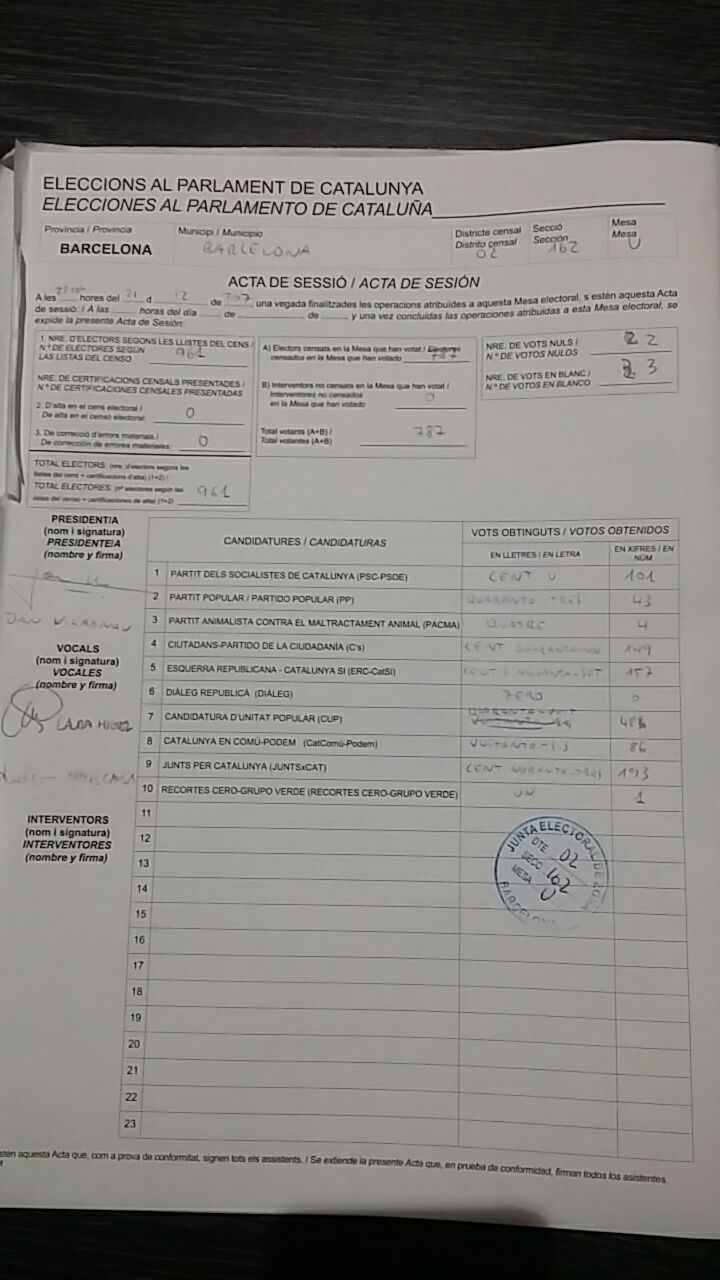 ELECCIONS AL PARLAMENT DE CATALUNYA
ELECCIONES AL PARLAMENTO DE CATALUÑA
Província / Provincia
BARCELONA
Municipi / Municipio
BARCELONA
Districte censal
Distrito censal
02
Secció
Sección
162
Mesa
Mesa
U
ACTA DE SESSIÓ / ACTA DE SESIÓN
A les hores del 21 d 12 de una vegada finalitzades les operacions atribuïdes a aquesta Mesa electoral, s'estén aquesta Acta
de sessió: / A las horas del día de de y una vez concluidas las operaciones atribuidas a esta Mesa electoral, se
expide la presente Acta de Sesión:
1. NRE. D'ELECTORS SEGONS LES LLISTES DEL CENS /
N.º DE ELECTORES SEGÚN
LAS LISTAS DEL CENSO 961
NRE. DE CERTIFICACIONS CENSALS PRESENTADES /
N.º DE CERTIFICACIONES CENSALES PRESENTADAS
2. D'alta en el cens electoral /
De alta en el censo electoral: 0
3. De correcció d'errors materials /
De corrección de errores materiales: 0
TOTAL ELECTORS: (nre. d'electors segons les
llistes del cens + certificacions d'alta) (1+2) /
TOTAL ELECTORES: (nº electores según las
listas del censo + certificaciones de alta) (1+2) 961
A) Electors censats en la Mesa que han votat / Electores
censados en la Mesa que han votado 787
B) Interventors no censats en la Mesa que han votat /
Interventores no censados
en la Mesa que han votado 0
Total votants (A+B) /
Total votantes (A+B) 787
NRE. DE VOTS NULS /
N.º DE VOTOS NULOS 2
NRE. DE VOTS EN BLANC /
N.º DE VOTOS EN BLANCO 3
PRESIDENT/A
(nom i signatura)
PRESIDENTE/A
(nombre y firma)
VOCALS
(nom i signatura)
VOCALES
(nombre y firma)
INTERVENTORS
(nom i signatura)
INTERVENTORES
(nombre y firma)
CANDIDATURES / CANDIDATURAS
VOTS OBTINGUTS / VOTOS OBTENIDOS
EN LLETRES / EN LETRA
EN XIFRES / EN NÚM.
1 PARTIT DELS SOCIALISTES DE CATALUNYA (PSC-PSOE) CENT U 101
2 PARTIT POPULAR / PARTIDO POPULAR (PP) QUARANTA TRES 43
3 PARTIT ANIMALISTA CONTRA EL MALTRACTAMENT ANIMAL (PACMA) QUATRE 4
4 CIUTADANS-PARTIDO DE LA CIUDADANÍA (C's) CENT QUARANTA-NOU 149
5 ESQUERRA REPUBLICANA - CATALUNYA SÍ (ERC-CatSí) CENT CINQUANTA-SET 157
6 DIÀLEG REPUBLICÀ (DIÀLEG) ZERO 0
7 CANDIDATURA D'UNITAT POPULAR (CUP) QUARANTA-VUIT 48
8 CATALUNYA EN COMÚ-PODEM (CatComú-Podem) VUITANTA-SIS 86
9 JUNTS PER CATALUNYA (JUNTSxCAT) CENT NORANTA-TRES 193
10 RECORTES CERO-GRUPO VERDE (RECORTES CERO-GRUPO VERDE) UN 1
11
12
13
14
15
16
17
18
19
20
21
22
23
JUNTA ELECTORAL DE ZONA
DTE. 02
SECC. 162
MESA U
BARCELONA
stén aquesta Acta que, com a prova de conformitat, signen tots els assistents. / Se extiende la presente Acta que, en prueba de conformidad, firman todos los asistentes.